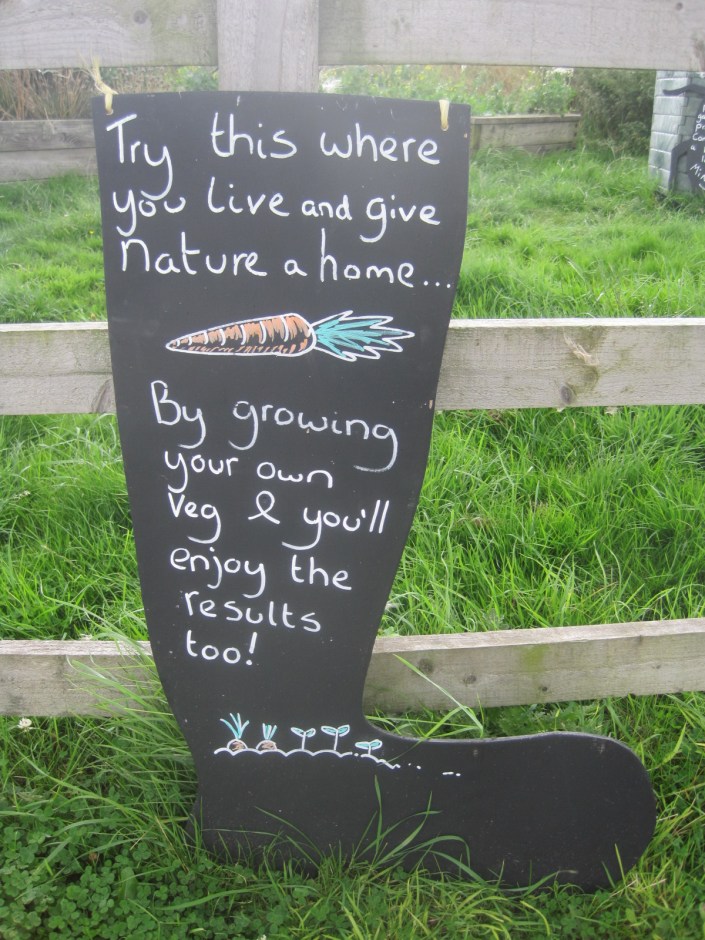 Try this where
you live and give
nature a home...
By growing
your own
veg & you'll
enjoy the
results
too!